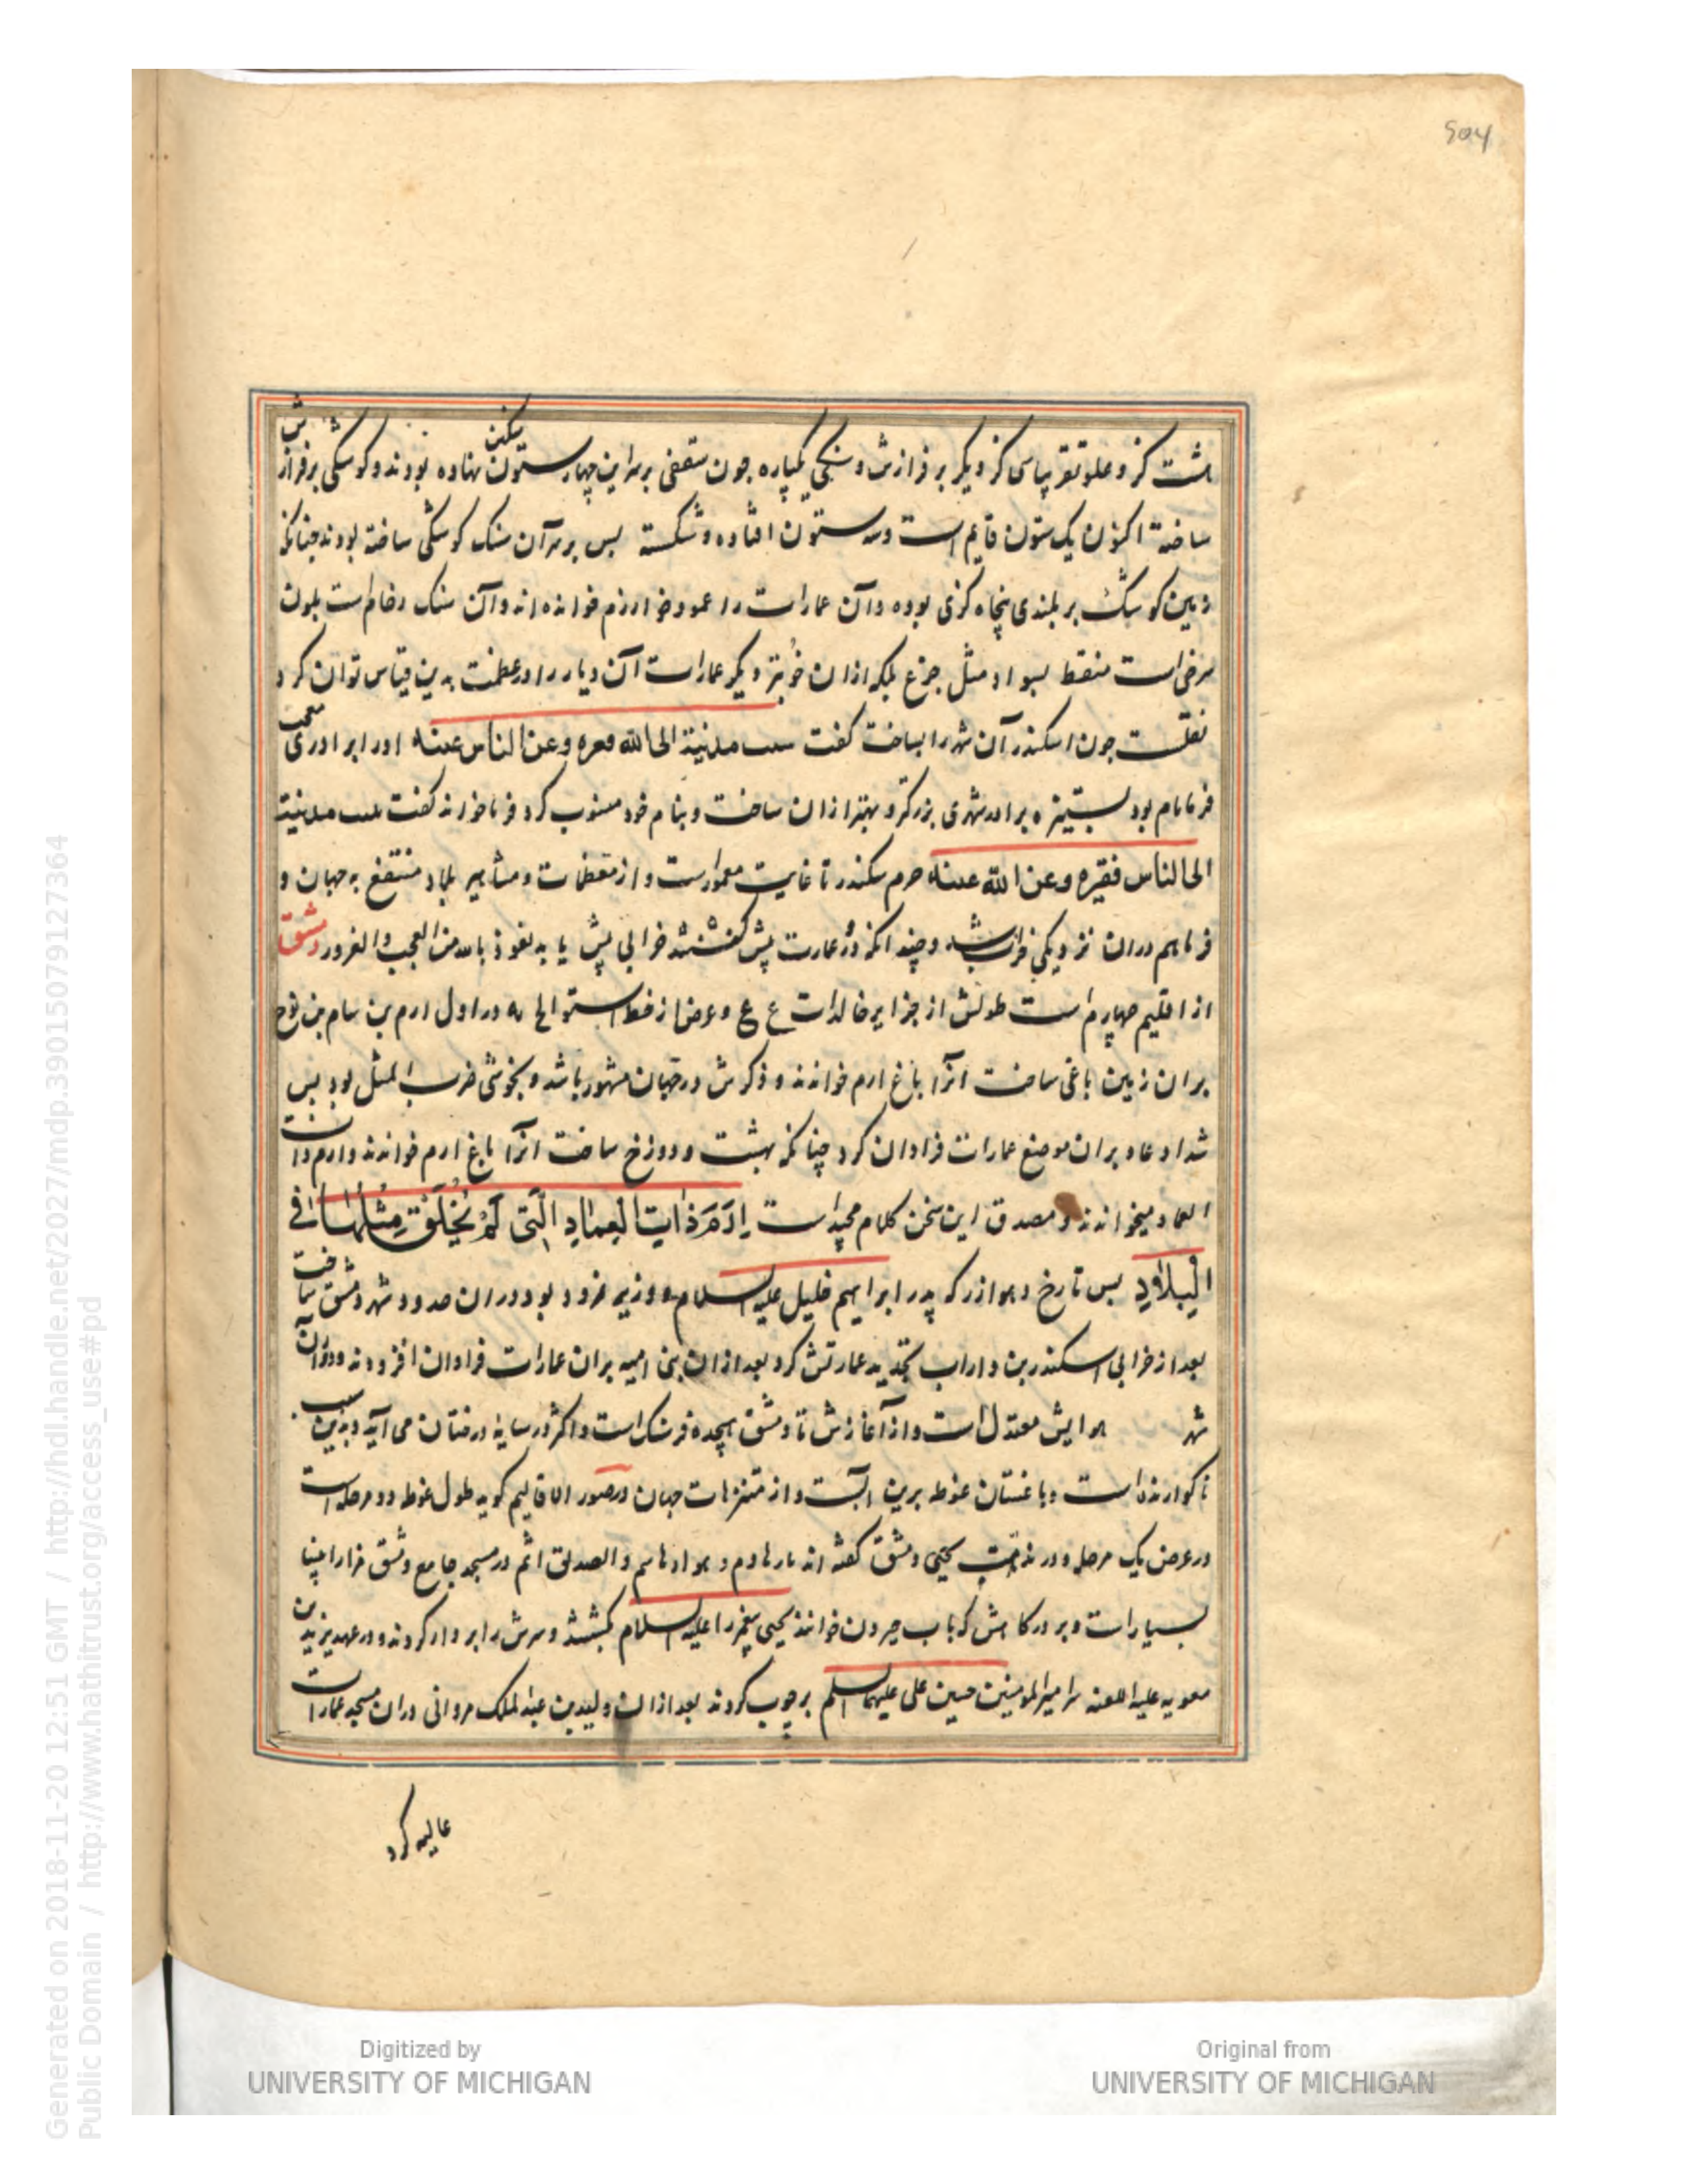 504
هشت کز و علو تقریبا سی کز دیگر بر فرازش و سنگی یکپاره چون سقفی بر سر این چهار ستون سنگین نهاده بودند و کوشکی بر فرازش
ساخته اکنون یک ستون قایم است و سه ستون افتاده و شکسته پس بر سر آن سنگ کوشکی ساخته بودند چنانکه
زمین کوشک بر بلندی پنجاه کزی بوده و آن عمارات را عمود خوارزم خوانده اند و آن سنک رخام است بلون
سرخ است منقط بسواد مثل جزع بلکه ازان خوبتر دیگر عمارات آن دیار را در عظمت بدین قیاس توان کرد
نقلست چون اسکندر آن شهر را بساخت کفت مدینة الی الله فقیره و عن الناس غنیه اورا برادری معجب
فرما نام بود بستیزه برادر شهری بزرکتر و بهتر ازان ساخت و بنام خود منسوب کرد فرما خواند کفت مدینة
الی الناس فقیره و عن الله غنیه جرم سکندر تا غایت معمور است و از معظمات و مشاهیر بلاد منتفع به جهان و
فرما هم دران نزدیکی خراب شد و چند انکه در عمارت پیش کفشند خرابی پیش یابد نعوذ بالله من العجب و الغرور دمشق
از اقلیم چهارم است طولش از جزایر خالدات ع و عرض از خط استوا لح یه در اول ارم بن سام بن نوح
بران زمین باغی ساخت انرا باغ ارم خواندند و ذکرش در جهان مشهور باشد و بخوشی ضرب المثل بود پس
شداد عاد بران موضع عمارات فراوان کرد چنانکه بهشت و دوزخ ساخت انرا باغ ارم خواندند و ارم ذات
العماد میخواندند و مصدق این سخن کلام مجید است اِرَمَ ذاتِ العِمادِ الَّتی لَمْ یُخْلَقْ مِثْلُها فی
الْبِلادِ پس تارخ و هو ازر که پدر ابراهیم خلیل علیه السلام و وزیر نمرود بود دران حدود شهر دمشق ساخت
بعد از خرابی اسکندر بن داراب تجدید عمارتش کرد بعد ازان بنی امیه بران عمارات فراوان افزودند و دوران
شهر هوایش معتدل است و از آغازش تا دمشق هجده فرسنک است و اکثر در سایه درختان می آید و بدین سبب
ناکوارنده است و باغستان غوطه برین آبست و از متنزهات جهان در صور الاقالیم کوید طول غوطه دو مرحله است
در عرض یک مرحله و در مذمت دمشق کفته اند و هواها سم و الصدیق اثم در مسجد جامع دمشق مزار انبیا
بسیار است و بر درکاهش که باب جیرون خوانند یحیی پیغمبر را علیه السلام بکشتند و سرش را بر دار کردند و در عهد یزید بن
معویه علیه اللعنه سر امیر المومنین حسین علی علیهما السلم بر چوب کردند بعد ازان ولید بن عبد الملک مروانی دران مسجد عمارات
عالیه کرد
Digitized by
UNIVERSITY OF MICHIGAN
Original from
UNIVERSITY OF MICHIGAN
Generated on 2018-11-20 12:51 GMT / http://hdl.handle.net/2027/mdp.39015079127364
Public Domain / http://www.hathitrust.org/access_use#pd